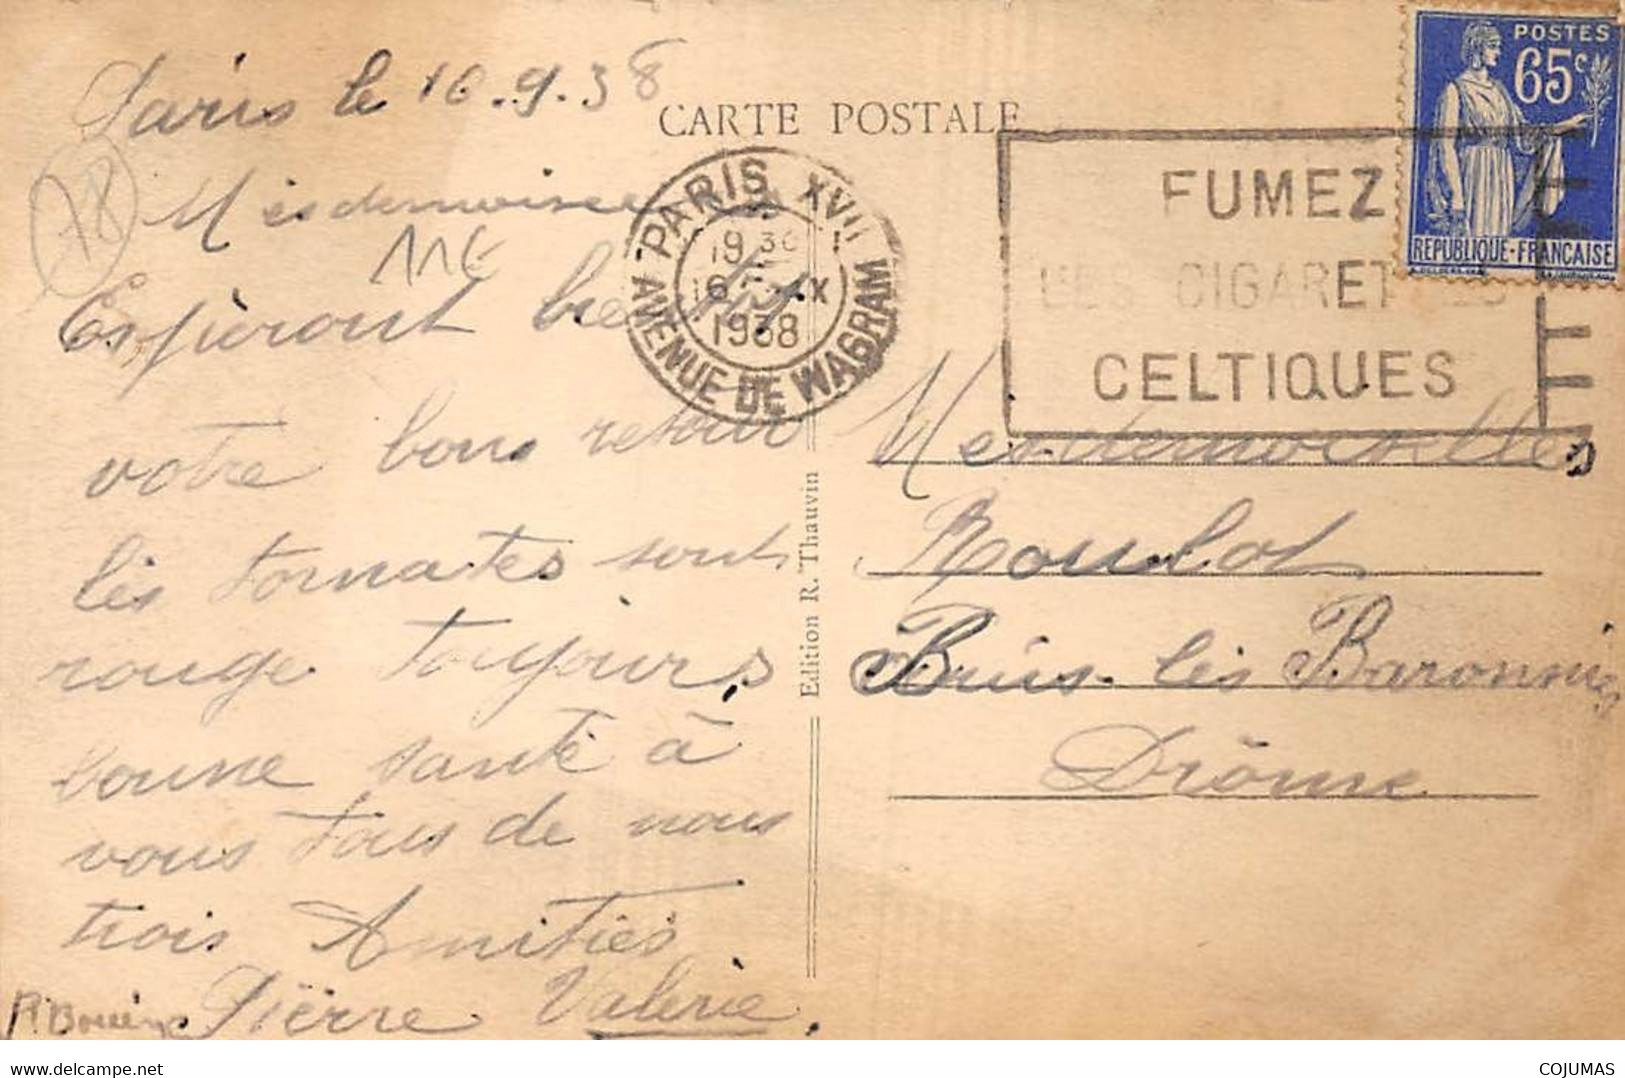 Paris le 16.9.38
CARTE POSTALE
POSTES
65c
REPUBLIQUE-FRANÇAISE
PARIS XVII
AVENUE DE WAGRAM
19 30
16 - IX
1938
FUMEZ
LES CIGARETTES
CELTIQUES
78
Mesdemoiselles
116
Espèront
votre bons retour
les tomates sont
rouge toujours
bonne santé à
vous tous de nous
trois Amitiés
Pierre Valerie
Edition R. Thauvin
Mesdemoiselles
Roulot
Buis les Baronnies
Drôme
delcampe.net
COJUMAS